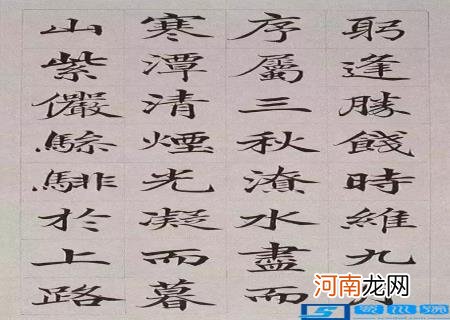 躬逢勝餞時維九
序屬三秋潦水盡而
寒潭清煙光凝而暮
山紫儼驂騑於上路
河南龙网